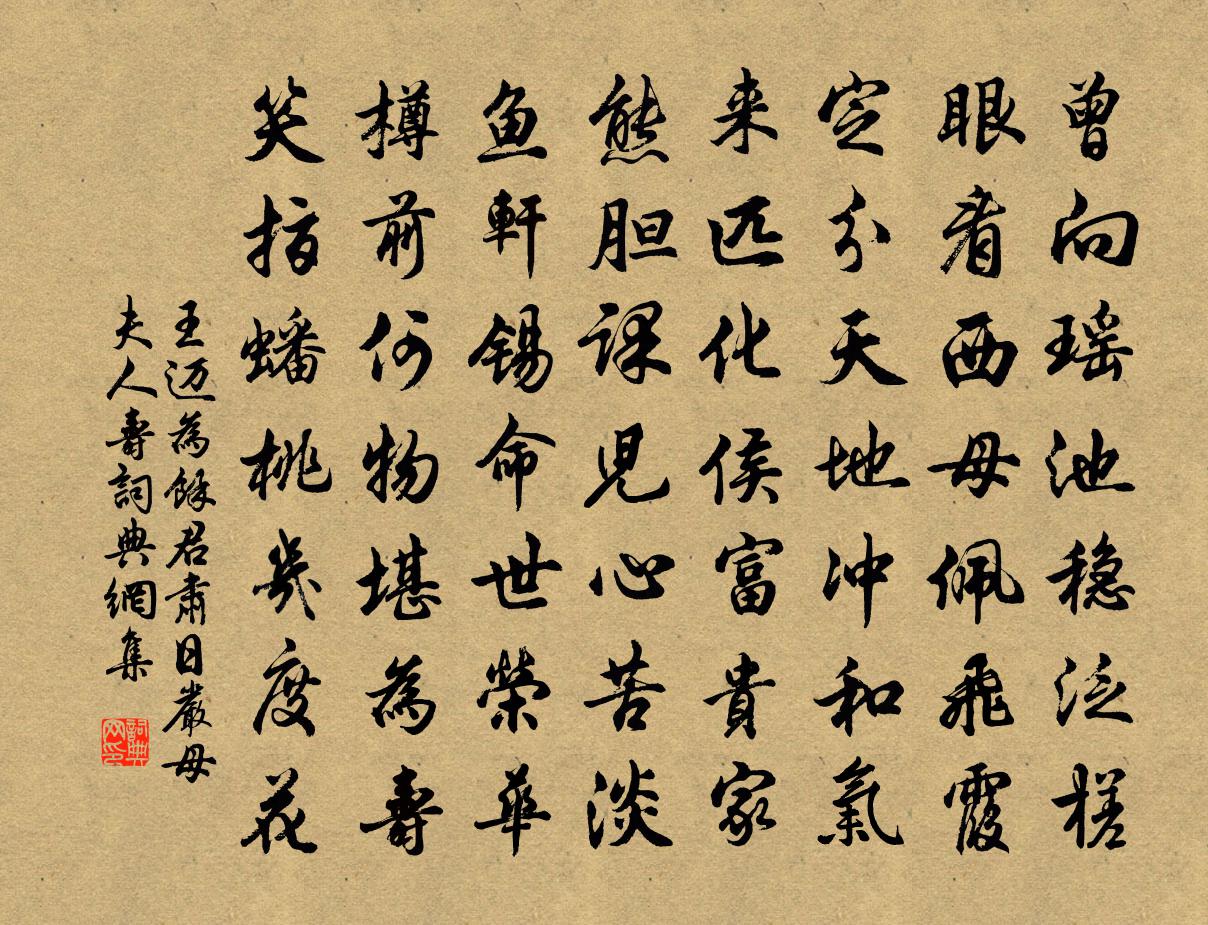 曾向瑶池稳泛槎
眼看西母佩飛霞
定分天地冲和氣
来匹化侯富貴家
熊胆課児心苦淡
鱼軒锡命世榮華
樽前何物堪為壽
笑指蟠桃幾度花
王迈為餘君肃日嚴母
夫人壽詞典網集
詞典网印